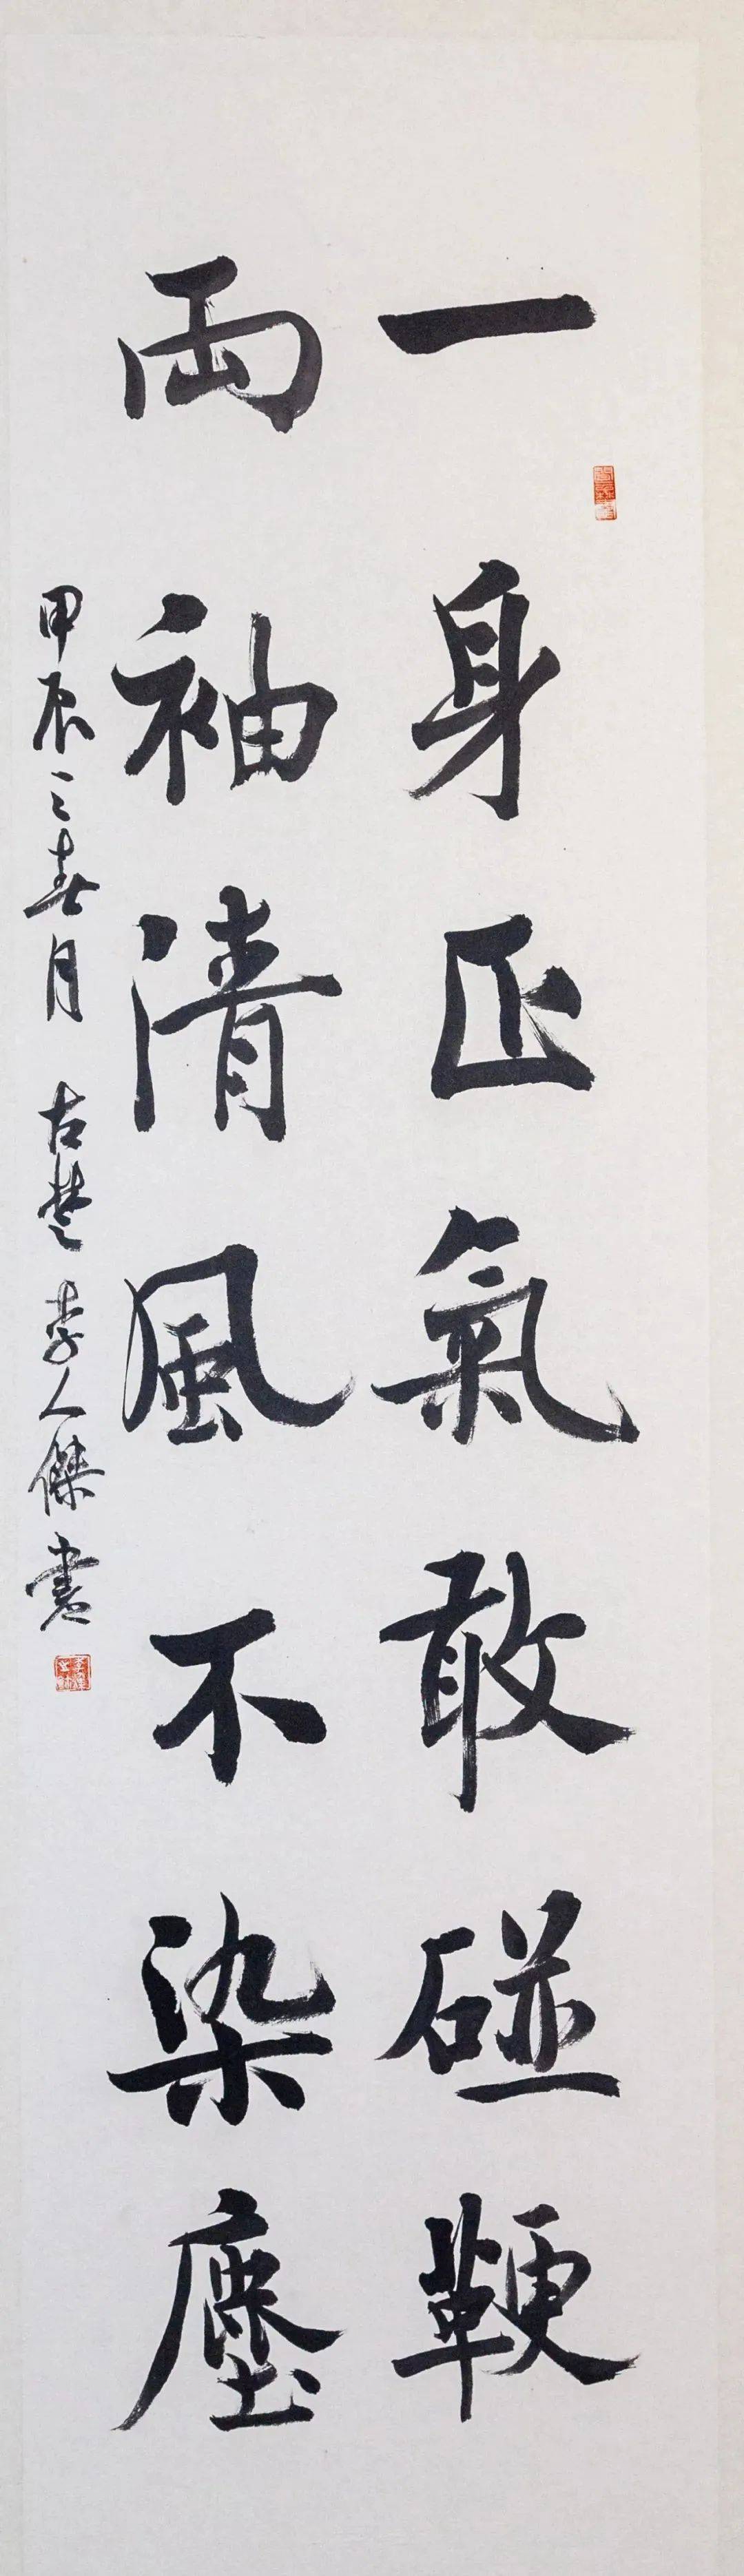 一身正氣敢碰鞕
兩袖清風不染塵
甲辰之春月 古楚 李人傑書